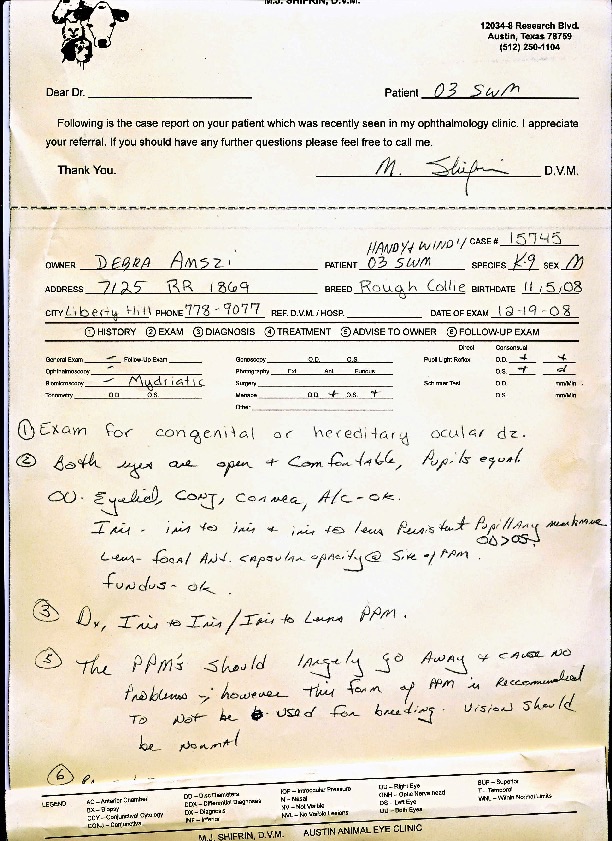 M.J. SHIFRIN, D.V.M.
12034-8 Research Blvd.
Austin, Texas 78759
(512) 250-1104
Dear Dr.
Patient 03 SWM
Following is the case report on your patient which was recently seen in my ophthalmology clinic. I appreciate
your referral. If you should have any further questions please feel free to call me.
Thank You.
M. Shifrin D.V.M.
HANDY & WINDY CASE # 15745
OWNER DEBRA AMSZI PATIENT 03 SWM SPECIES K-9 SEX M
ADDRESS 7125 RR 1869 BREED Rough Collie BIRTHDATE 11/5/08
CITY Liberty Hill PHONE 778-9077 REF. D.V.M. / HOSP. DATE OF EXAM 12-19-08
① HISTORY ② EXAM ③ DIAGNOSIS ④ TREATMENT ⑤ ADVISE TO OWNER ⑥ FOLLOW-UP EXAM
Direct Consensual
General Exam Follow-Up Exam Gonioscopy O.D. O.S. Pupil Light Reflex O.D. + +
Ophthalmoscopy Photography Ext. Ant. Fundus O.S. +
Biomicroscopy Mydriatic Surgery Schirmer Test O.D. mm/Min.
Tonometry O.D. O.S. Menace O.D. + O.S. + O.S. mm/Min.
Other
① Exam for congenital or hereditary ocular dz.
② Both eyes are open + Comfortable, Pupils equal
OU- Eyelid, CONJ, Cornea, A/C-OK.
Iris - iris to iris + iris to lens Persistent Pupillary membrane
OD>OS.
Lens- focal Ant. capsular opacity @ Site of PPM.
fundus- ok.
③ Dx, Iris to Iris/Iris to Lens PPM.
⑤ The PPM's should largely go away + cause no
Problems; however this form of PPM is Recommended
To Not be used for breeding. Vision should
be Normal
⑥
LEGEND AC – Anterior Chamber DD – Disc Diameters IOP – Intraocular Pressure OD – Right Eye SUP – Superior
BX – Biopsy DDX – Differential Diagnosis N – Nasal ONH – Optic Nerve head T – Temporal
CCY – Conjunctival Cytology DX – Diagnosis NV – Not Visible OS – Left Eye WNL – Within Normal Limits
CONJ – Conjunctiva INF – Inferior NVL – No Visible Lesions OU – Both Eyes
M.J. SHIFRIN, D.V.M. AUSTIN ANIMAL EYE CLINIC